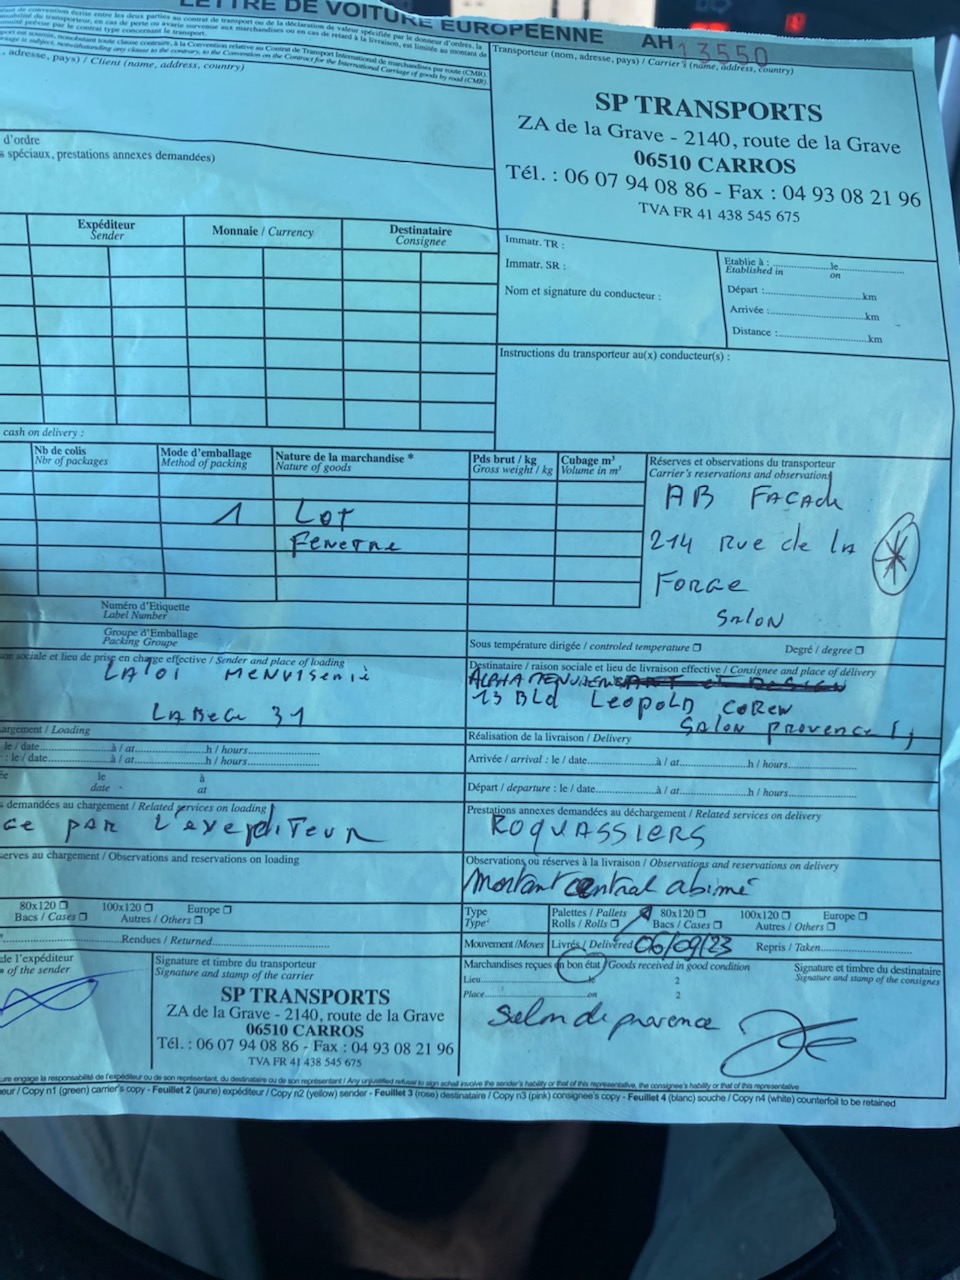 LETTRE DE VOITURE EUROPÉENNE AH 13550
adresse, pays) / Client (name, address, country)
Transporteur (nom, adresse, pays) / Carrier's (name, address, country)
SP TRANSPORTS
ZA de la Grave - 2140, route de la Grave
06510 CARROS
Tél. : 06 07 94 08 86 - Fax : 04 93 08 21 96
TVA FR 41 438 545 675
d'ordre
spéciaux, prestations annexes demandées)
Expéditeur
Sender
Monnaie / Currency
Destinataire
Consignee
Immatr. TR :
Immatr. SR :
Nom et signature du conducteur :
Etablie à : le
Established in on
Départ : km
Arrivée : km
Distance : km
Instructions du transporteur au(x) conducteur(s) :
cash on delivery :
Nb de colis
Nbr of packages
Mode d'emballage
Method of packing
Nature de la marchandise *
Nature of goods
Pds brut / kg
Gross weight / kg
Cubage m³
Volume in m³
Réserves et observations du transporteur
Carrier's reservations and observations
1 LOT
FENETRE
AB FACADE
214 Rue de LA
FORGE
SALON
Numéro d'Etiquette
Label Number
Groupe d'Emballage
Packing Groupe
Sous température dirigée / controled temperature Degré / degree
sociale et lieu de prise en charge effective / Sender and place of loading
MENUISERIE
LABEGE 31
Destinataire / raison sociale et lieu de livraison effective / Consignee and place of délivery
13 Bld LEOPOLD COREN
SALON provence
argement / Loading
le / date à / at h / hours
: le / date à / at h / hours
le à
date at
Réalisation de la livraison / Delivery
Arrivée / arrival : le / date à / at h / hours
Départ / departure : le / date à / at h / hours
demandées au chargement / Related services on loading
PAR L'EXPEDITEUR
Prestations annexes demandées au déchargement / Related services on delivery
ROQUASSIERS
erves au chargement / Observations and reservations on loading
Observations ou réserves à la livraison / Observations and reservations on delivery
Montant central abimé
80x120 100x120 Europe
Bacs / Cases Autres / Others
Rendues / Returned
Type
Type
Palettes / Pallets 80x120 100x120 Europe
Rolls / Rolls Bacs / Cases Autres / Others
Mouvement / Moves Livrés / Delivered 06/09/23 Repris / Taken
de l'expéditeur
of the sender
Signature et timbre du transporteur
Signature and stamp of the carrier
SP TRANSPORTS
ZA de la Grave - 2140, route de la Grave
06510 CARROS
Tél. : 06 07 94 08 86 - Fax : 04 93 08 21 96
TVA FR 41 438 545 675
Marchandises reçues en bon état / Goods received in good condition
Lieu le 2
Place on 2
Signature et timbre du destinataire
Signature and stamp of the consignes
Salon de provence
ure engage la responsabilité de l'expéditeur ou de son représentant, du destinataire ou de son représentant / Any unjustified refusal to sign schall involve the sender's liability or that of this representative, the consignee's liability or that of this representative
eur / Copy n1 (green) carrier's copy - Feuillet 2 (jaune) expéditeur / Copy n2 (yellow) sender - Feuillet 3 (rose) destinataire / Copy n3 (pink) consignee's copy - Feuillet 4 (blanc) souche / Copy n4 (white) counterfoil to be retained